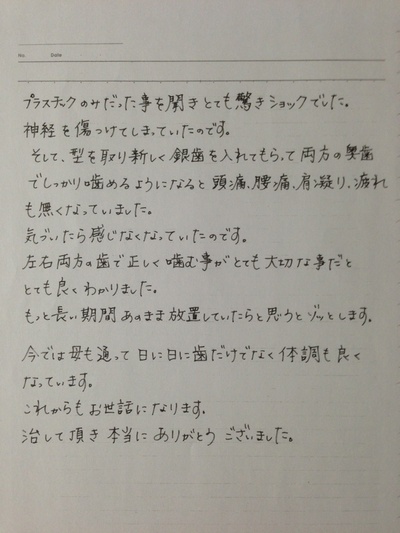 No.
Date
プラスチックのみだった事を聞きとても驚きショックでした。
神経を傷つけてしまっていたのです。
そして、型を取り新しく銀歯を入れてもらって両方の奥歯
でしっかり噛めるようになると頭痛、腰痛、肩凝り、疲れ
も無くなっていました。
気づいたら感じなくなっていたのです。
左右両方の歯で正しく噛む事がとても大切な事だと
とても良くわかりました。
もっと長い期間あのまま放置していたらと思うとゾッとします。
今では母も通って日に日に歯だけでなく体調も良く
なっています。
これからもお世話になります。
治して頂き本当にありがとうございました。